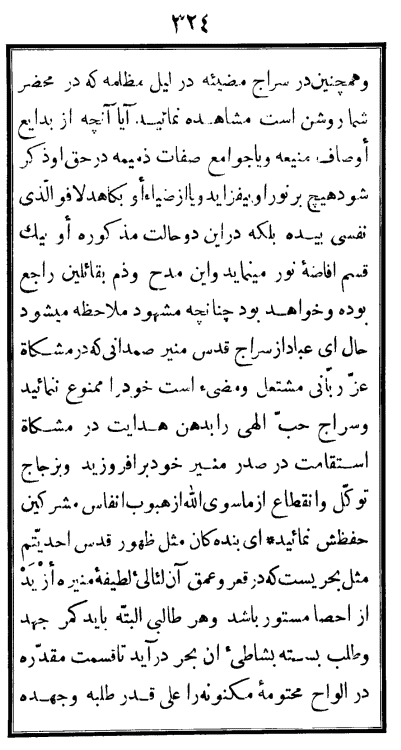 ٣٢٤
وهمچنین در سراج مضیئه در لیل مظلمه که در محضر
شما روشن است مشاهده نمائید آیا آنچه از بدایع
أوصاف منیعه ویا جوامع صفات ذمیمه در حق او ذکر
شود هیچ بر نور او بیفزاید ویا از ضیاء أو بکاهد لا فو الّذی
نفسی بیده بلکه در این دو حالت مذکوره أو بیك
قسم افاضهٔ نور مینماید واین مدح وذم بقائلین راجع
بوده وخواهد بود چنانچه مشهود ملاحظه میشود
حال ای عباد از سراج قدس منیر صمدانی که در مشکاة
عزّ ربّانی مشتعل ومضیء است خود را ممنوع ننمائید
وسراج حبّ الهی را بدهن هدایت در مشکاة
استقامت در صدر منیر خود بر افروزید وبزجاج
توکّل وانقطاع از ما سوی الله از هبوب انفاس مشرکین
حفظش نمائید* ای بنده کان مثل ظهور قدس احدیّتم
مثل بحریست که در قعر وعمق آن لئالئ لطیفهٔ منیره أَزْیَدْ
از احصا مستور باشد وهر طالبی البتّه باید کمر جهد
وطلب بسته بشاطئ ان بحر در آید تا قسمت مقدّره
در الواح محتومهٔ مکنونه را علی قدر طلبه وجهده